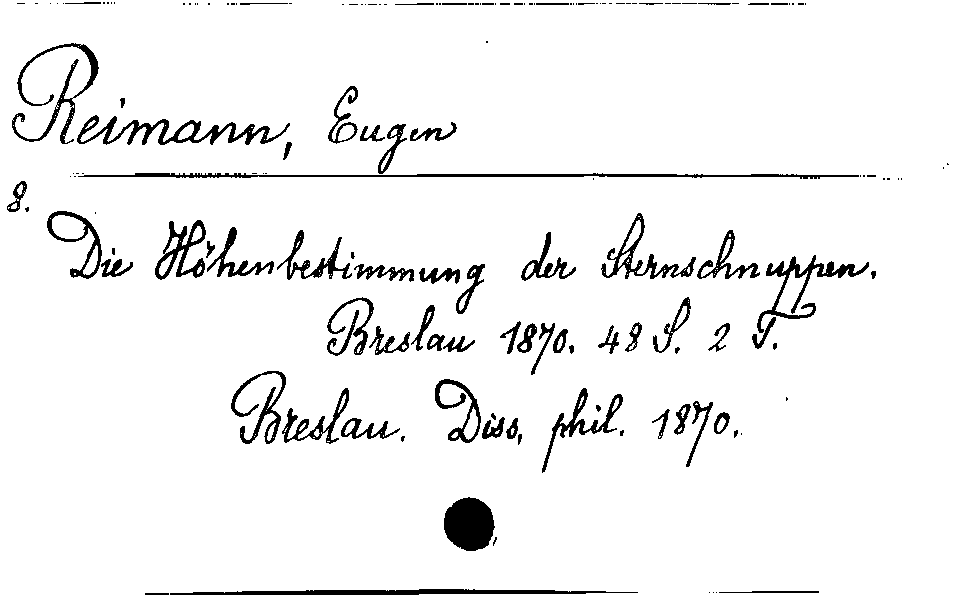 Reimann, Eugen
8.
Die Höhenbestimmung der Sternschnuppen.
Breslau 1870. 48 S. 2 T.
Breslau. Diss. phil. 1870.